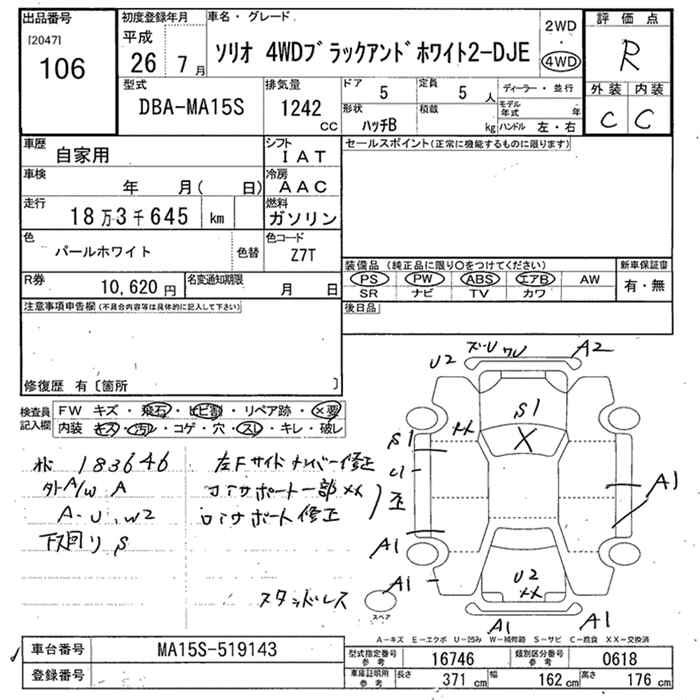 出品番号
[2047]
106
初度登録年月
平成
26 7 月
車名・グレード
ソリオ 4WDブラックアンドホワイト2-DJE
2WD
・
4WD
評価点
R
外装 内装
C C
型式
DBA-MA15S
排気量
1242 cc
ドア 5
定員 5 人
形状
ハッチB
積載
kg
ディーラー・並行
モデル年式 年
ハンドル 左・右
車歴
自家用
シフト
IAT
車検
年 月( 日)
冷房
AAC
走行
18万3千645 km
燃料
ガソリン
色
パールホワイト
色替
色コード
Z7T
R券
10,620 円
名変通知期限
月 日
セールスポイント(正常に機能するものに限ります)
装備品 (純正品に限り○をつけてください)
PS PW ABS エアB AW
SR ナビ TV カワ
新車保証書
有・無
後日品
注意事項申告欄(不具合内容等は具体的に記入して下さい)
修復歴 有〔箇所 〕
検査員
記入欄
FW キズ・飛石・ヒビ割・リペア跡・×要
内装 キズ・汚レ・コゲ・穴・スレ・キレ・破レ
183646
外A/W A
A-U、W2
下回り S
左Fサイドメンバー修正
コアサポート一部XX
コアサポート修正
スタッドレス
U2
ズレU
A2
S1
XX
X
S1
U1
A1
A1
A1
U2
XX
A1
A1
スペア
A-キズ E-エクボ U-凹み W-補修跡 S-サビ C-腐食 XX-交換済
車台番号
MA15S-519143
登録番号
型式指定番号
参考
16746
類別区分番号
参考
0618
車庫証明用
参考
長さ 371 cm
幅 162 cm
高さ 176 cm